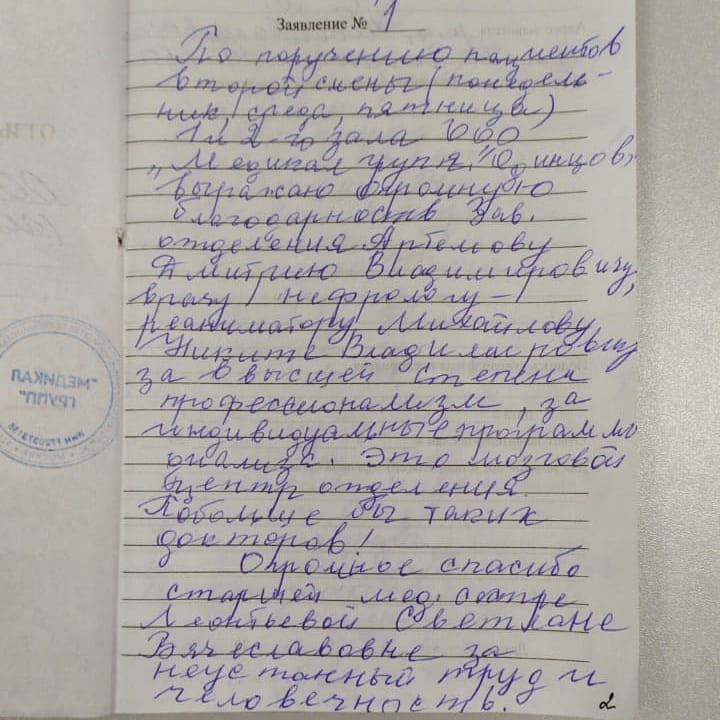 Заявление № 1
По поручению пациентов
второй смены (понедель-
ник, среда, пятница)
1и 2-го зала ООО
"Медикал групп" Одинцов,
выражаю огромную
благодарность Зав.
отделения Артемову
Дмитрию Владимировичу,
врачу нефрологу-
реаниматору Михайлову
Никите Владимировичу
за в высшей степени
профессионализм, за
индивидуальные программы
диализа. Это мозговой
центр отделения.
Побольше бы таких
докторов!
Огромное спасибо
старшей мед. сестре
Леонтьевой Светлане
Вячеславовне за
неустанный труд и
человечность.
2
"МЕДИКАЛ
ГРУПП"